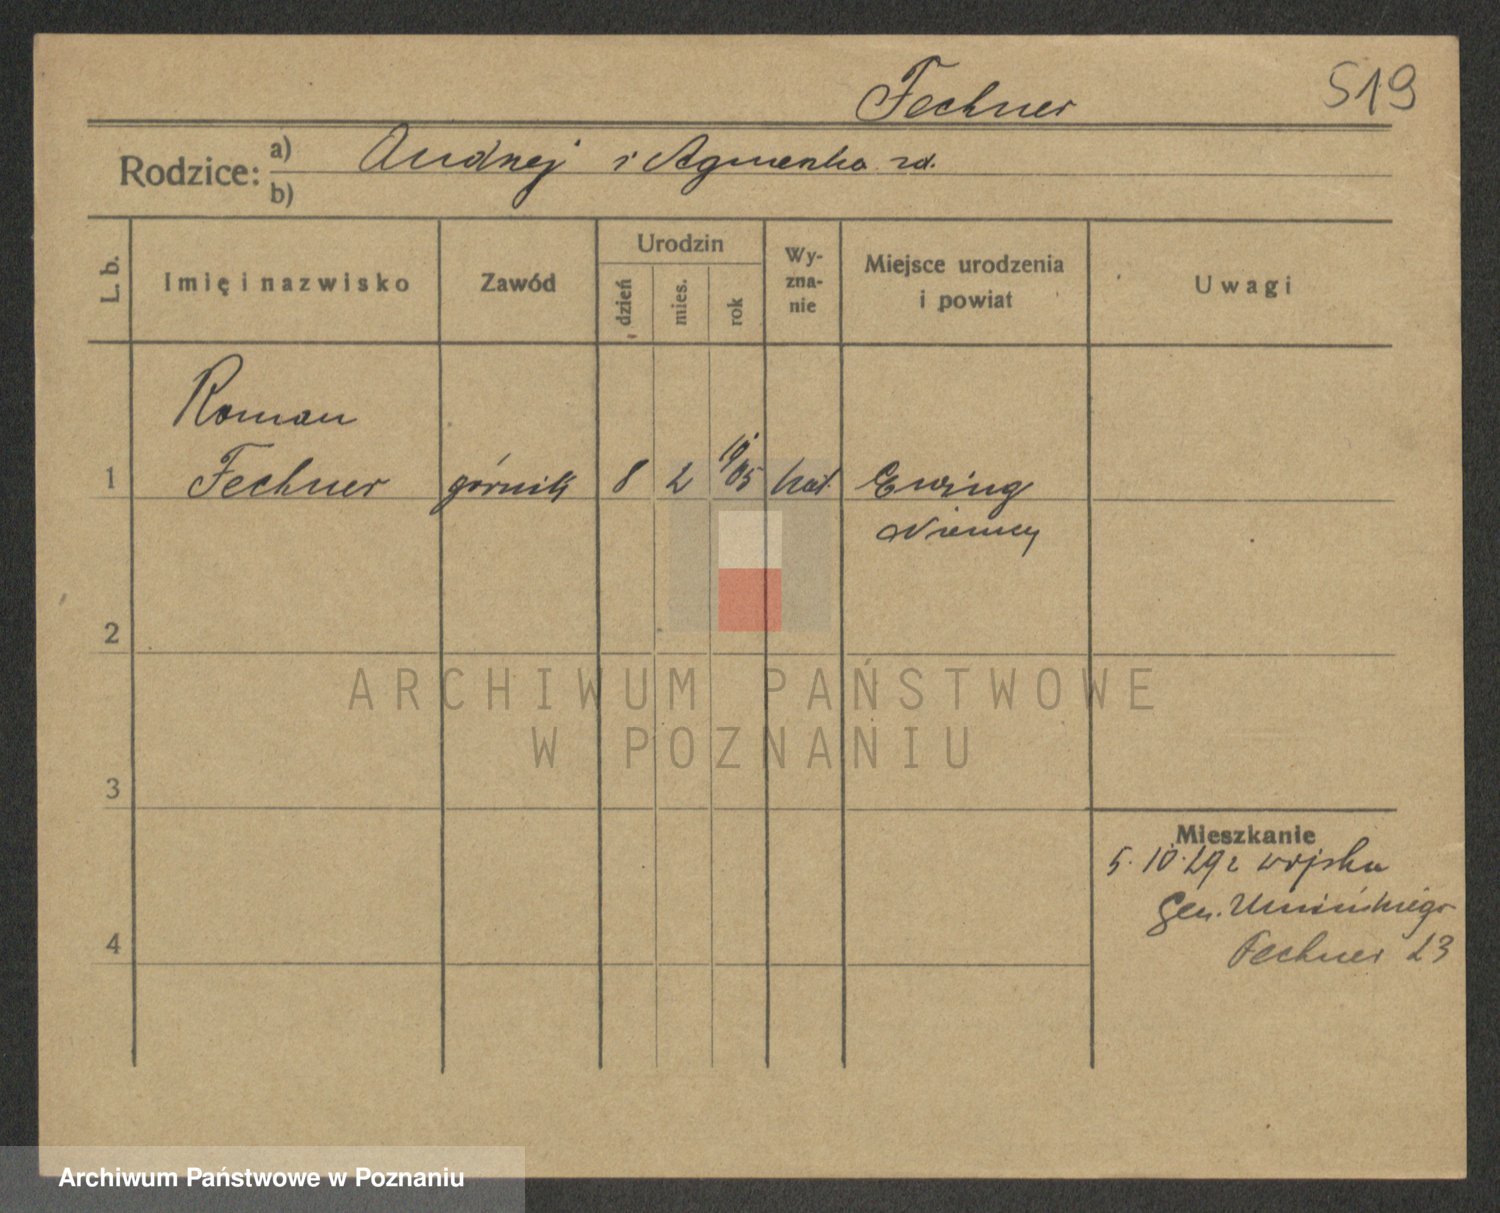 Fechner
519
Rodzice: a) Andrzej i Agnieszka zd.
b)
L. b.
Imię i nazwisko
Zawód
Urodzin
dzień
mies.
rok
Wy-
zna-
nie
Miejsce urodzenia
i powiat
Uwagi
Roman
1 Fechner górnik 8 2 1905 kat. Ewing
Niemcy
2
ARCHIWUM PAŃSTWOWE
W POZNANIU
3
Mieszkanie
5.10.29 z wojska
Gen. Umińskiego
4
Fechner 23
Archiwum Państwowe w Poznaniu